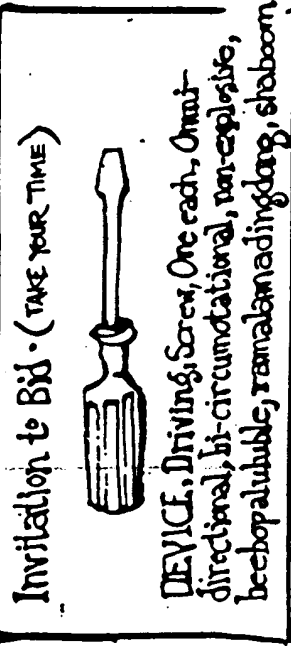 Invitation to Bid • (TAKE YOUR TIME)
DEVICE, Driving, Screw, One each, Omni-
directional, bi-circumotational, non-explosive,
beebopalububle, ramalamadingdong, shaboom